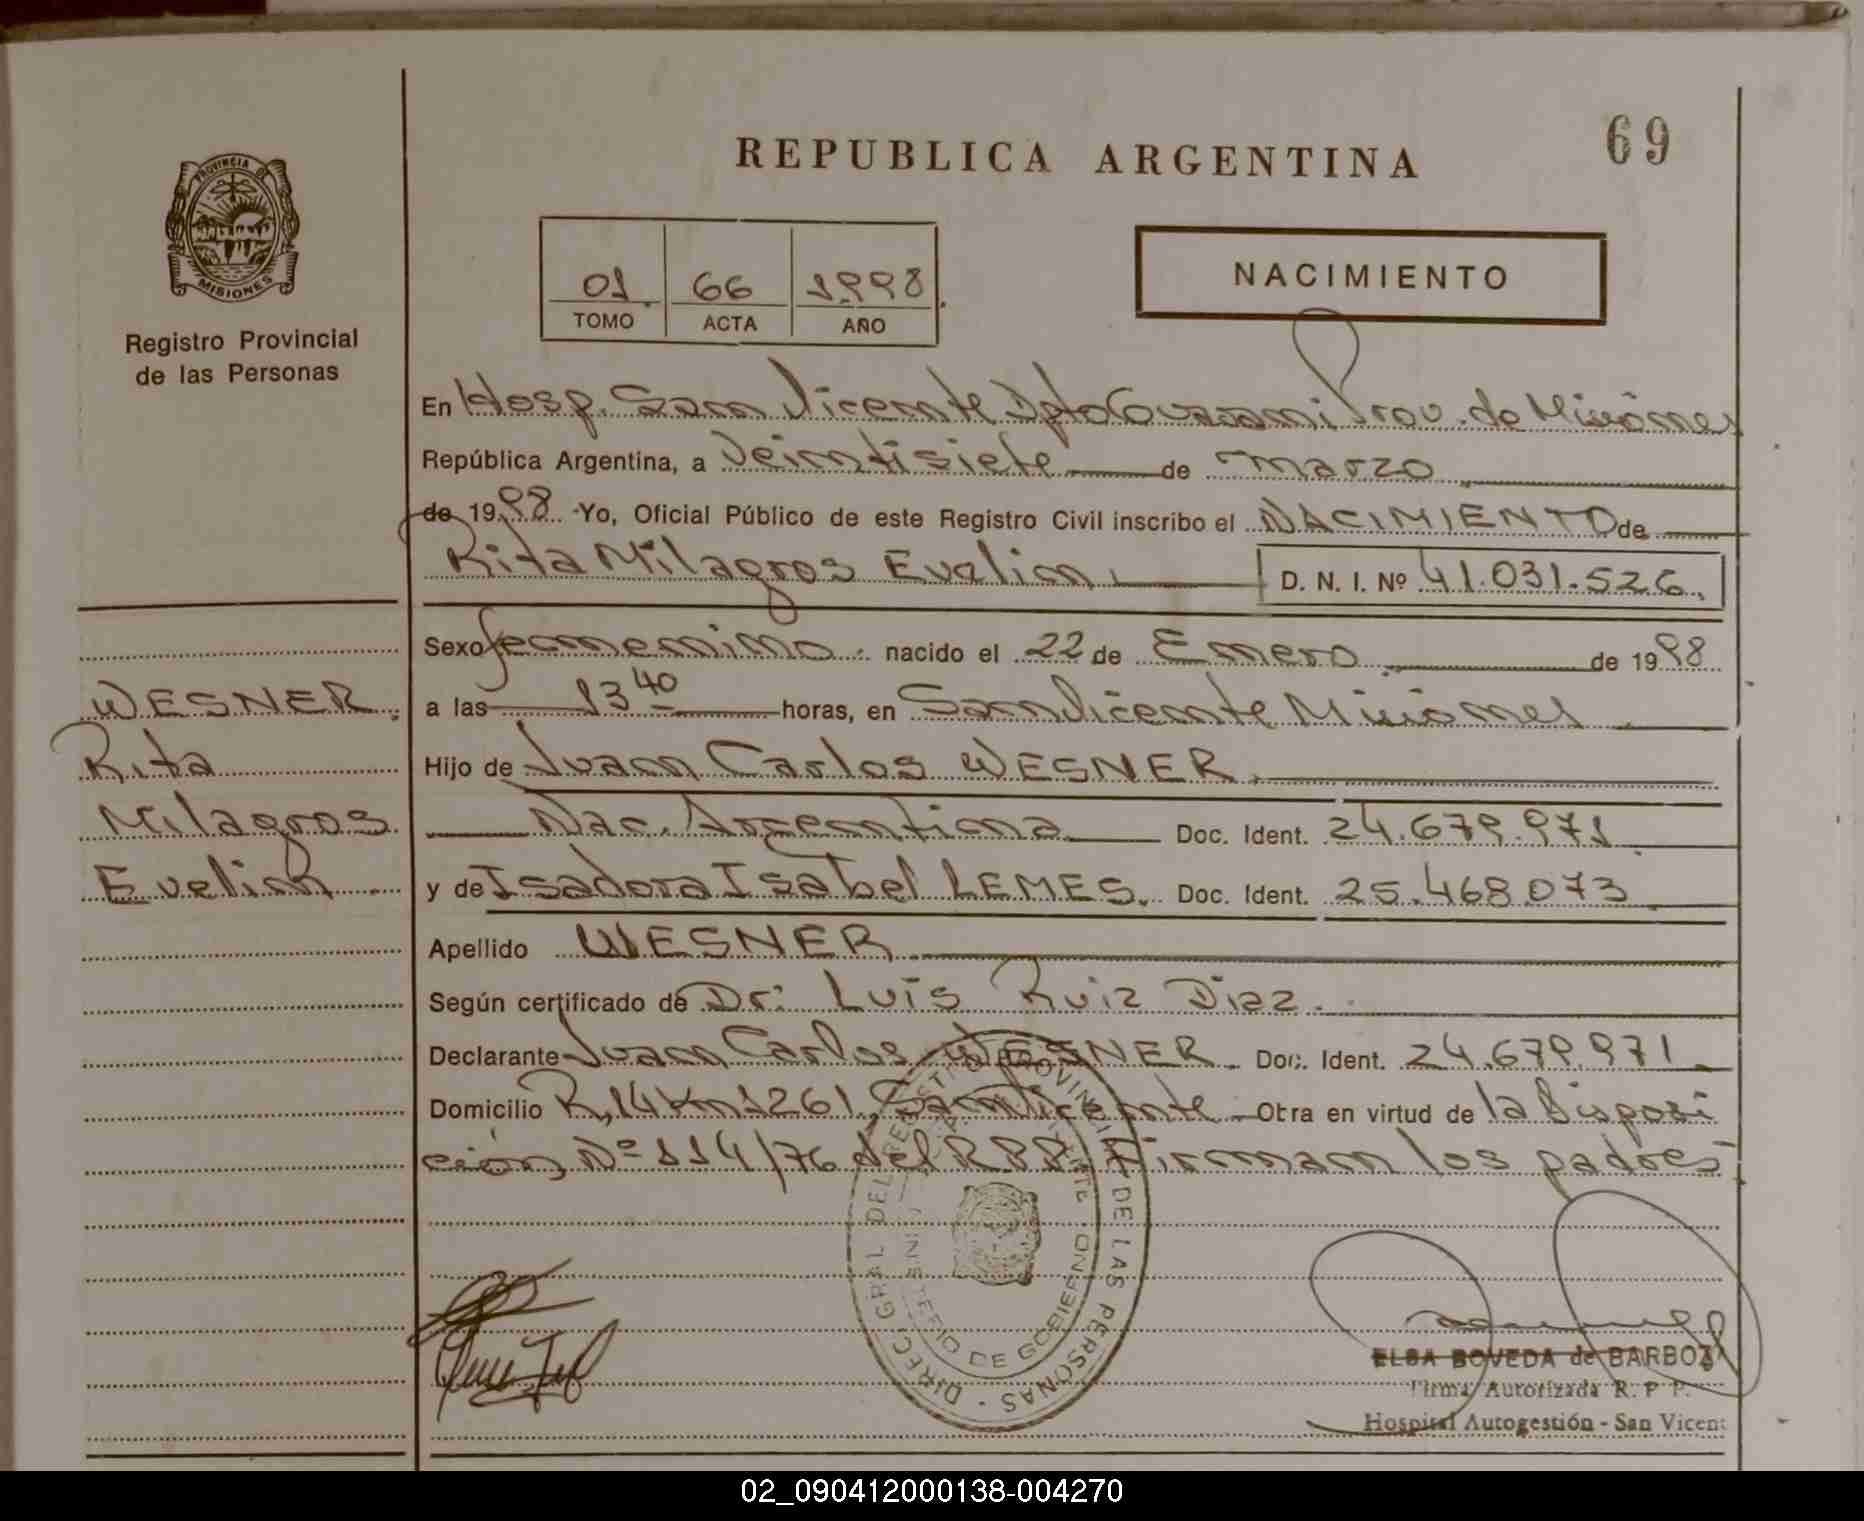 REPUBLICA ARGENTINA
69
PROVINCIA DE
MISIONES
Registro Provincial
de las Personas
01 66 1998
TOMO ACTA AÑO
NACIMIENTO
En Hosp. San Vicente Dpto Guarani Prov. de Misiones
República Argentina, a Veintisiete de marzo
de 1998 Yo, Oficial Público de este Registro Civil inscribo el NACIMIENTO de
Rita Milagros Evelin D. N. I. Nº 41.031.526.
Sexo femenino. nacido el 22 de Enero de 1998
a las 13 40 horas, en San Vicente Misiones
Hijo de Juan Carlos WESNER.
Nac. Argentina Doc. Ident. 24.679.971
y de Isadora Isabel LEMES. Doc. Ident. 25.468.073
Apellido WESNER
Según certificado de Dr: Luis Ruiz Diaz.
Declarante Juan Carlos WESNER. Doc. Ident. 24.679.971
Domicilio R, 14 Km 1261, San Vicente Otra en virtud de la Disposi
ción Nº 114/76 del R P P. Firman los padres
WESNER.
Rita
Milagros
Evelin
DIREC. GRAL DEL REGISTRO PROVINCIAL DE LAS PERSONAS
MINISTERIO DE GOBIERNO
ELSA BOVEDA de BARBOZA
Firma Autorizada R. P P.
Hospital Autogestión - San Vicent
02_090412000138-004270